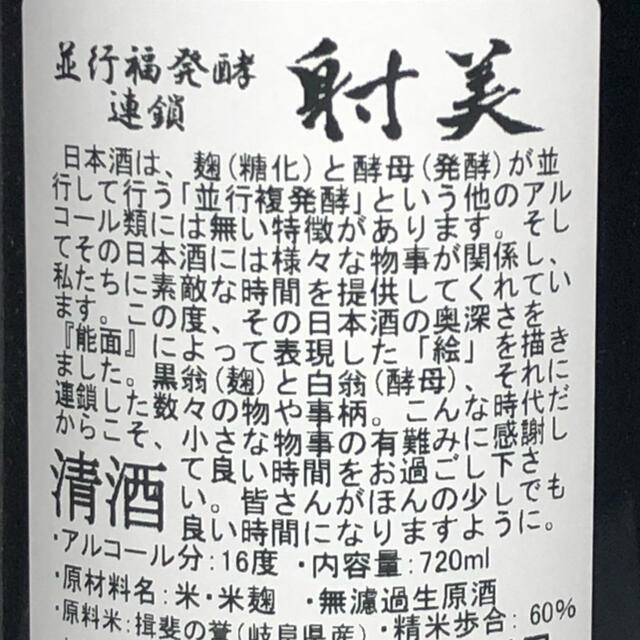 並行福発酵
連鎖
射美
日本酒は、麹(糖化)と酵母(発酵)が並
行して行う「並行複発酵」という他のアル
コール類には無い特徴があります。そし
てその日本酒には様々な物事が関係し、
私たちに素敵な時間を提供してくれてい
ます。この度、その日本酒の奥深さを
『能面』によって表現した「絵」を描き
ました。黒翁(麹)と白翁(酵母)、それに
連鎖した数々の物や事柄。こんな時代だ
からこそ、小さな物事の有難みに感謝し
て良い時間をお過ごし下さ
い。皆さんがほんの少しでも
良い時間になりますように。
清酒
・アルコール分:16度 ・内容量:720ml
・原材料名:米・米麹 ・無濾過生原酒
・原料米:揖斐の誉(岐阜県産)・精米歩合:60%